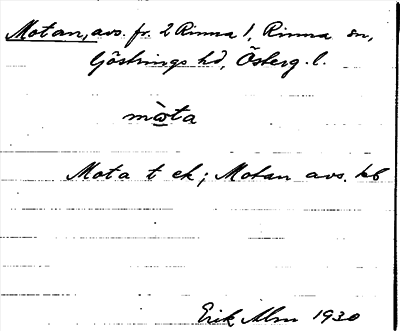 Motan, avs. fr. 2 Rinna 1, Rinna sn,
Göstrings hd, Österg. l.
mὼta
Mota t ek; Motan avs. kb
Erik Alm 1930